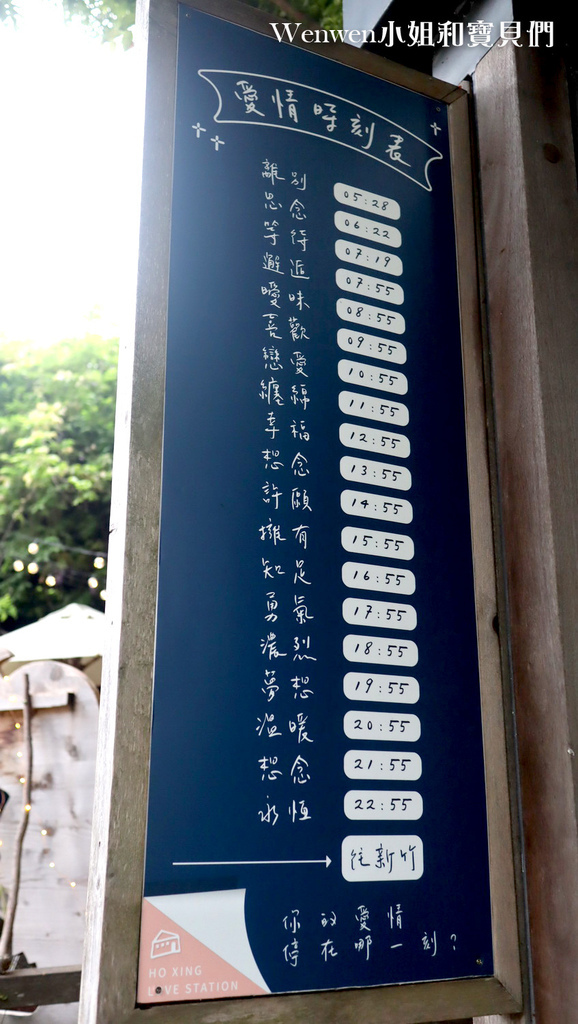 Wenwen小姐和寶貝們
愛情時刻表
離別 05:28
思念 06:22
等待 07:19
邂逅 07:55
曖昧 08:55
喜歡 09:55
戀愛 10:55
纏綿 11:55
幸福 12:55
想念 13:55
許願 14:55
擁有 15:55
知足 16:55
勇氣 17:55
濃烈 18:55
夢想 19:55
溫暖 20:55
想念 21:55
永恆 22:55
往新竹
你的愛情
停在哪一刻?
HO XING
LOVE STATION